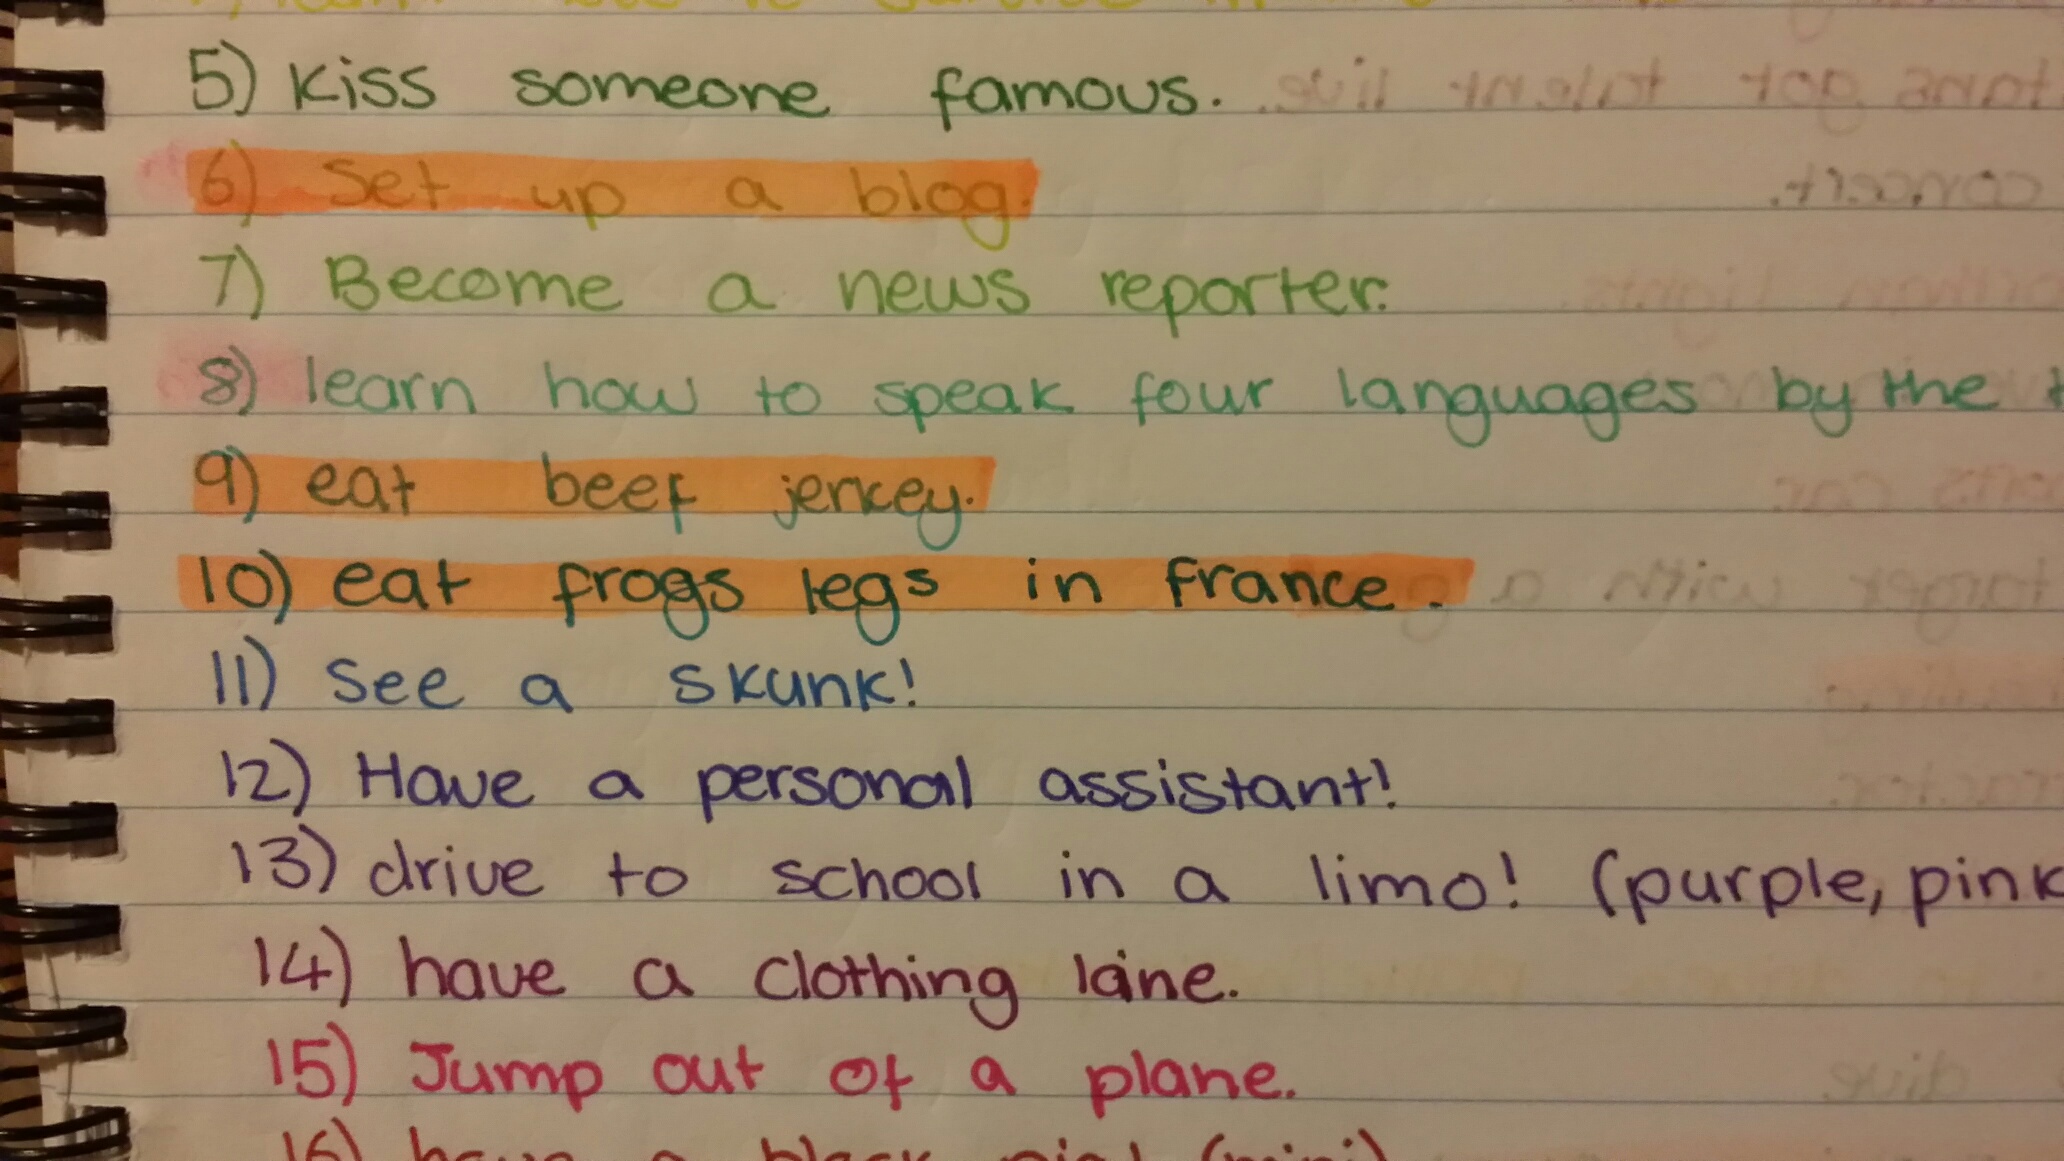 5) Kiss someone famous.
6) Set up a blog.
7) Become a news reporter.
8) learn how to speak four languages by the
9) eat beef jerkey.
10) eat frogs legs in france.
11) See a skunk!
12) Have a personal assistant!
13) drive to school in a limo! (purple, pink
14) have a clothing line.
15) Jump out of a plane.
16) have a black (mini)